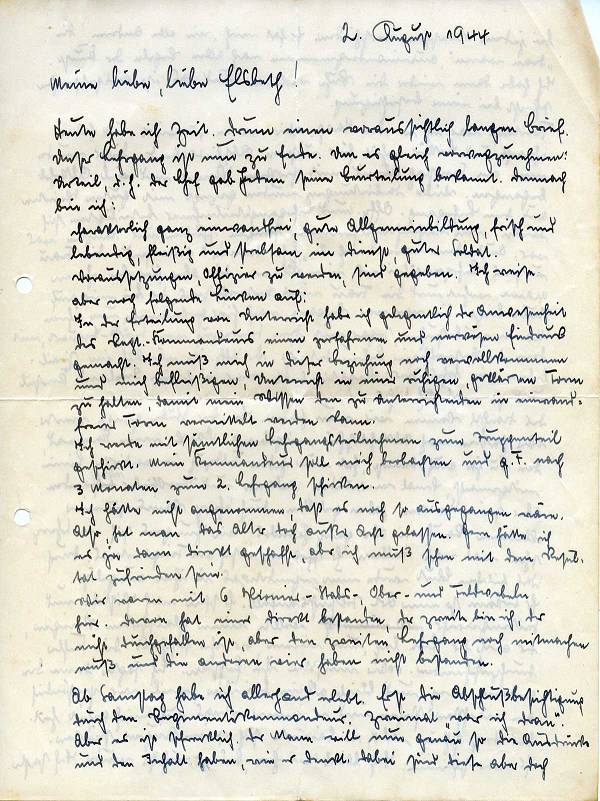 2. August 1944
Meine liebe, liebe Elsbeth!
Heute habe ich Zeit. Drum einen voraussichtlich langen Brief.
Unser Lehrgang ist nun zu Ende. Um es gleich vorwegzunehmen:
Urteil, d.h. der Chef gab Jedem seine Beurteilung bekannt. Demnach
bin ich:
charakterlich ganz einwandfrei, gute Allgemeinbildung, frisch und
lebendig, fleißig und strebsam im Dienst, guter Soldat.
Voraussetzungen, Offizier zu werden, sind gegeben. Ich weise
aber noch folgende Lücken auf:
In der Erteilung von Unterricht habe ich gelegentlich der Anwesenheit
des Regt.-Kommandeurs einen zerfahrenen und nervösen Eindruck
gemacht. Ich muß mich in dieser Beziehung noch vervollkommnen
und mich befleißigen, Unterricht in einer ruhigen, geklärten Form
zu halten, damit mein Wissen den zu Unterrichtenden in einwand-
freier Form vermittelt werden kann.
Ich werde mit sämtlichen Lehrgangsteilnehmern zum Truppenteil
geschickt. Mein Kommandeur soll mich beobachten und g.F. nach
3 Monaten zum 2. Lehrgang schicken.
Ich hätte nicht angenommen, daß es noch so ausgegangen wäre.
Also hat man das Alter doch außer Acht gelassen. Gern hätte ich
es ja dann direkt geschafft, aber ich muß schon mit dem Resul-
tat zufrieden sein.
Wir waren mit 6 Pionier-Stabs-, Ober- und Feldwebeln
hier. Davon hat einer direkt bestanden, der zweite bin ich, der
nicht durchgefallen ist, aber den zweiten Lehrgang noch mitmachen
muß und die anderen vier haben nicht bestanden.
Ab Samstag habe ich allerhand erlebt. Erst die Abschlußbesichtigung
durch den Regimentskommandeur. Zweimal war ich "dran".
Aber es ist schrecklich, der Mann will nun genau so die Ausdrücke
und den Inhalt haben, wie er denkt. Dabei sind diese aber doch